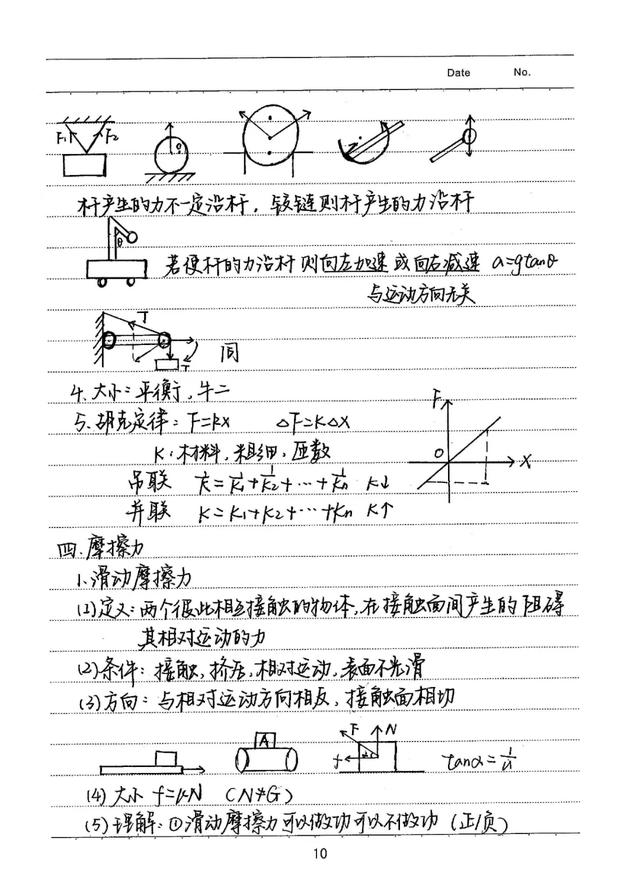 Date No.
F₁ F₂ θ
杆产生的力不一定沿杆，铰链则杆产生的力沿杆
θ
若使杆的力沿杆则向左加速或向右减速 a=gtanθ
与运动方向无关
T
T 同
4、大小：平衡，牛二
5、胡克定律：F=kx △F=K△X
K：材料，粗细，匝数
串联 1/K=1/K₁+1/K₂+…+1/Kn K↓
并联 K=K₁+K₂+…+Kn K↑
F O X
四.摩擦力
1.滑动摩擦力
(1)定义：两个彼此相互接触的物体，在接触面间产生的阻碍
其相对运动的力
(2)条件：接触，挤压，相对运动，表面不光滑
(3)方向：与相对运动方向相反，接触面相切
A F N f α tanα=1/μ
(4)大小 f=μN （N≠G）
(5)理解：①滑动摩擦力可以做功可以不做功（正/负）
10